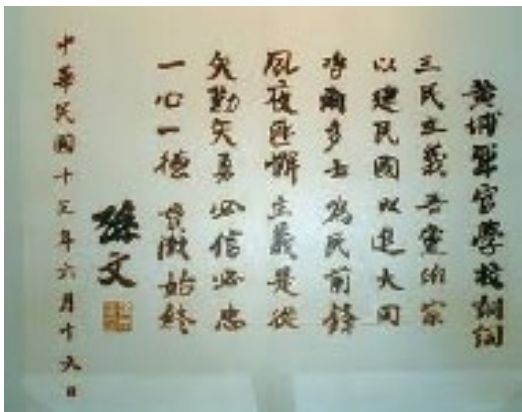 黃埔軍官學校訓詞
三民主義 吾黨所宗
以建民國 以進大同
咨爾多士 為民前鋒
夙夜匪懈 主義是從
矢勤矢勇 必信必忠
一心一德 貫徹始終
孫文
中華民國十三年六月十六日